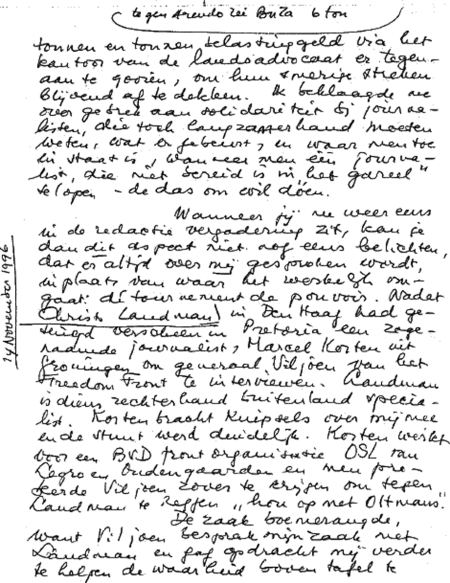 tegen Arendo zei Bonza 6 ton
tonnen en tonnen belastinggeld via het
kantoor van de landsadvocaat er tegen-
aan te gooien, om hun smerige streken
blijvend af te dekken. Ik beklaagde me
over gebrek aan solidariteit bij journa-
listen, die toch langzamerhand moeten
weten, wat er gebeurt, en waar men toe
in staat is, wanneer men één journa-
list, die niet bereid is in het gareel"
te lopen - de das om wil doen.
Wanneer jij nu weer eens
in de redactie vergadering zit, kan je
dan dit aspect niet nog eens belichten,
dat er altijd over mij gesproken wordt,
in plaats van waar het werkelijk om-
gaat: détournement de pouvoir. Nadat
Christo Landman in Den Haag had ge-
tuigd verscheen in Pretoria een zoge-
naamde journalist, Marcel Korten uit
Groningen om generaal Viljoen van het
Freedom Front te interviewen. Landman
is diens rechterhand buitenland specia-
list. Korten bracht knipsels over mij mee
en de stunt werd duidelijk. Korten werkt
voor een BVD front organisatie OSL van
en Oudengaarden en men pro-
beerde Viljoen zover te krijgen om tegen
Landman te zeggen "hou op met Oltmans".
De zaak boemerangde,
want Viljoen besprak mijn zaak met
Landman en gaf opdracht mij verder
te helpen de waarheid boven tafel te
14 November 1996